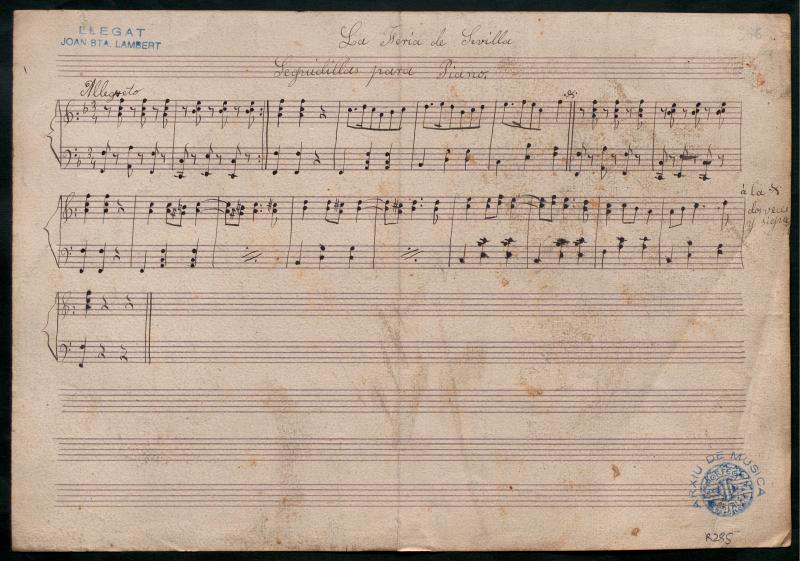 LLEGAT
JOAN BTA. LAMBERT
La Feria de Sevilla
Seguidillas para Piano.
Allegreto
á la
dos veces
y sigue
ARXIU DE MUSICA
R285